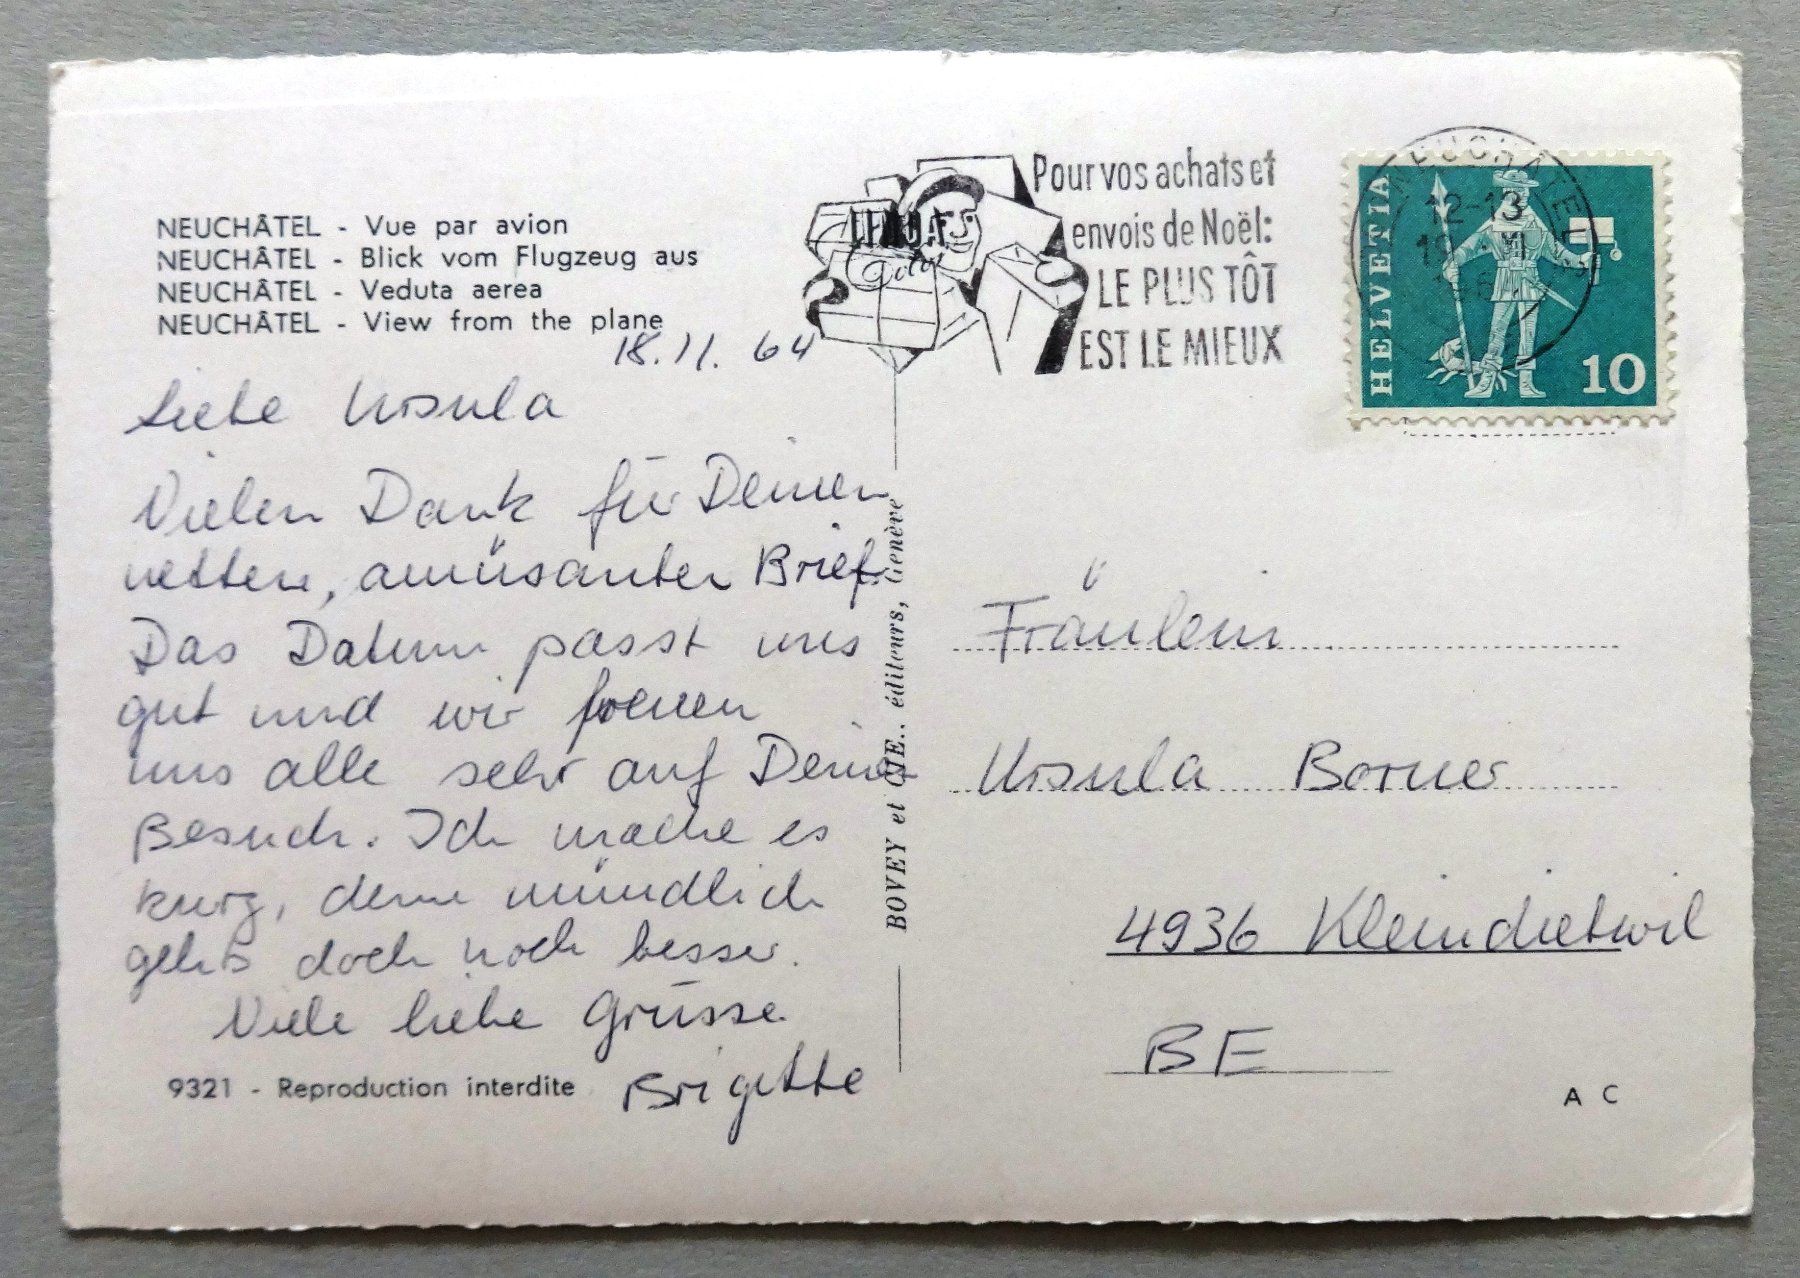 NEUCHÂTEL - Vue par avion
NEUCHÂTEL - Blick vom Flugzeug aus
NEUCHÂTEL - Veduta aerea
NEUCHÂTEL - View from the plane
18.11.64
Liebe Ursula
Vielen Dank für Deinen
netten, amüsanten Brief.
Das Datum passt uns
gut und wir freuen
uns alle sehr auf Deinen
Besuch. Ich mache es
kurz, denn mündlich
gehts doch noch besser.
Viele liebe Grüsse
Brigitte
9321 - Reproduction interdite
BOVEY et CIE., éditeurs, Genève
Pour vos achats et
envois de Noël:
LE PLUS TÔT
EST LE MIEUX
NEUCHÂTEL
12-13
HELVETIA
10
Fräulein
Ursula Borner
4936 Kleindietwil
BE
A C